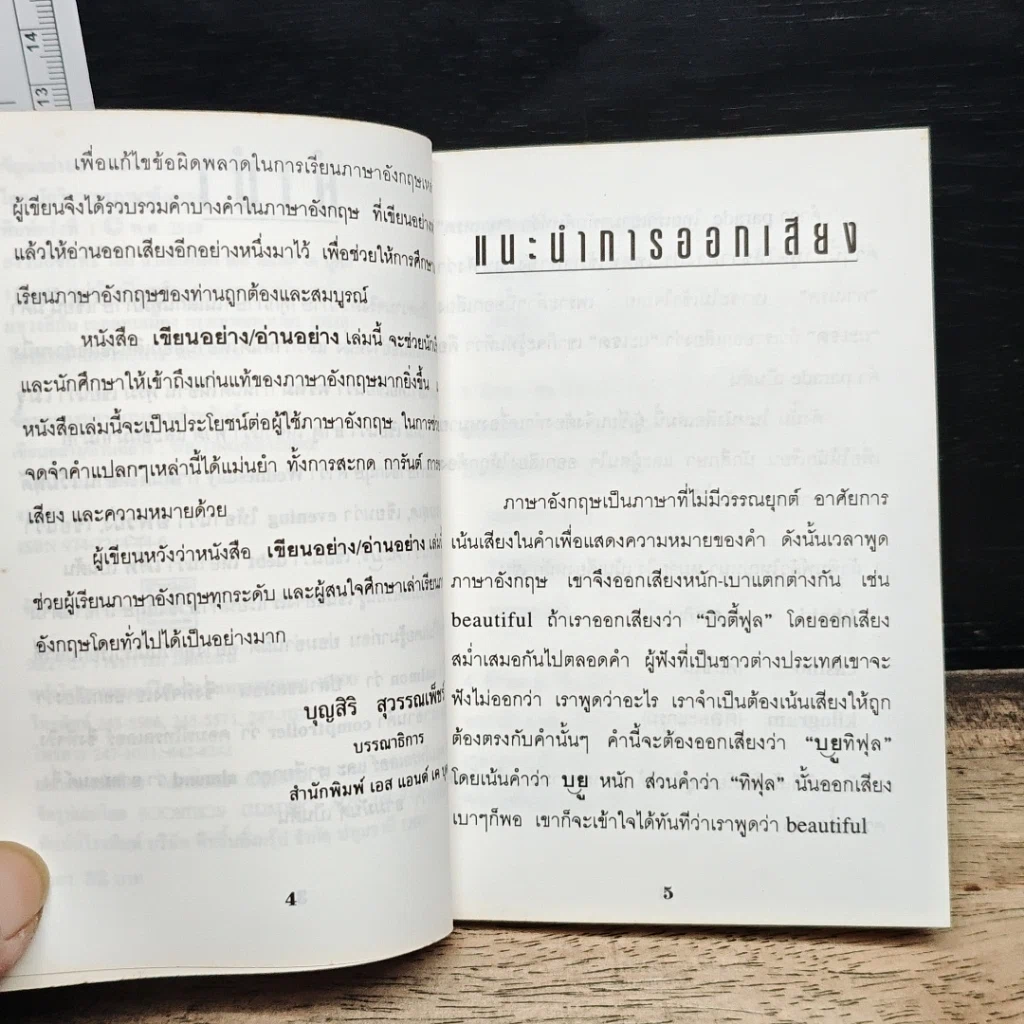 14
13
เพื่อแก้ไขข้อผิดพลาดในการเรียนภาษาอังกฤษ
ผู้เขียนจึงได้รวบรวมคำบางคำในภาษาอังกฤษ ที่เขียนอย่าง
แล้วให้อ่านออกเสียงอีกอย่างหนึ่งมาไว้ เพื่อช่วยให้การศึกษา
เรียนภาษาอังกฤษของท่านถูกต้องและสมบูรณ์
หนังสือ เขียนอย่าง/อ่านอย่าง เล่มนี้ จะช่วย
และนักศึกษาให้เข้าถึงแก่นแท้ของภาษาอังกฤษมากยิ่งขึ้น
หนังสือเล่มนี้จะเป็นประโยชน์ต่อผู้ใช้ภาษาอังกฤษ ในการ
จดจำคำแปลกๆเหล่านี้ได้แม่นยำ ทั้งการสะกด การันต์
เสียง และความหมายด้วย
ผู้เขียนหวังว่าหนังสือ เขียนอย่าง/อ่านอย่าง
ช่วยผู้เรียนภาษาอังกฤษทุกระดับ และผู้สนใจศึกษาเล่าเรียน
อังกฤษโดยทั่วไปได้เป็นอย่างมาก
บุญสิริ สุวรรณเพ็ชร์
บรรณาธิการ
สำนักพิมพ์ เอส แอนด์ เค
4
แนะนำการออกเสียง
ภาษาอังกฤษเป็นภาษาที่ไม่มีวรรณยุกต์ อาศัยการ
เน้นเสียงในคำเพื่อแสดงความหมายของคำ ดังนั้นเวลาพูด
ภาษาอังกฤษ เขาจึงออกเสียงหนัก-เบาแตกต่างกัน เช่น
beautiful ถ้าเราออกเสียงว่า “บิวตี้ฟูล” โดยออกเสียง
สม่ำเสมอกันไปตลอดคำ ผู้ฟังที่เป็นชาวต่างประเทศเขาจะ
ฟังไม่ออกว่า เราพูดว่าอะไร เราจำเป็นต้องเน้นเสียงให้ถูก
ต้องตรงกับคำนั้นๆ คำนี้จะต้องออกเสียงว่า “บยูทิฟุล”
โดยเน้นคำว่า บยู หนัก ส่วนคำว่า “ทิฟุล” นั้นออกเสียง
เบาๆก็พอ เขาก็จะเข้าใจได้ทันทีว่าเราพูดว่า beautiful
5